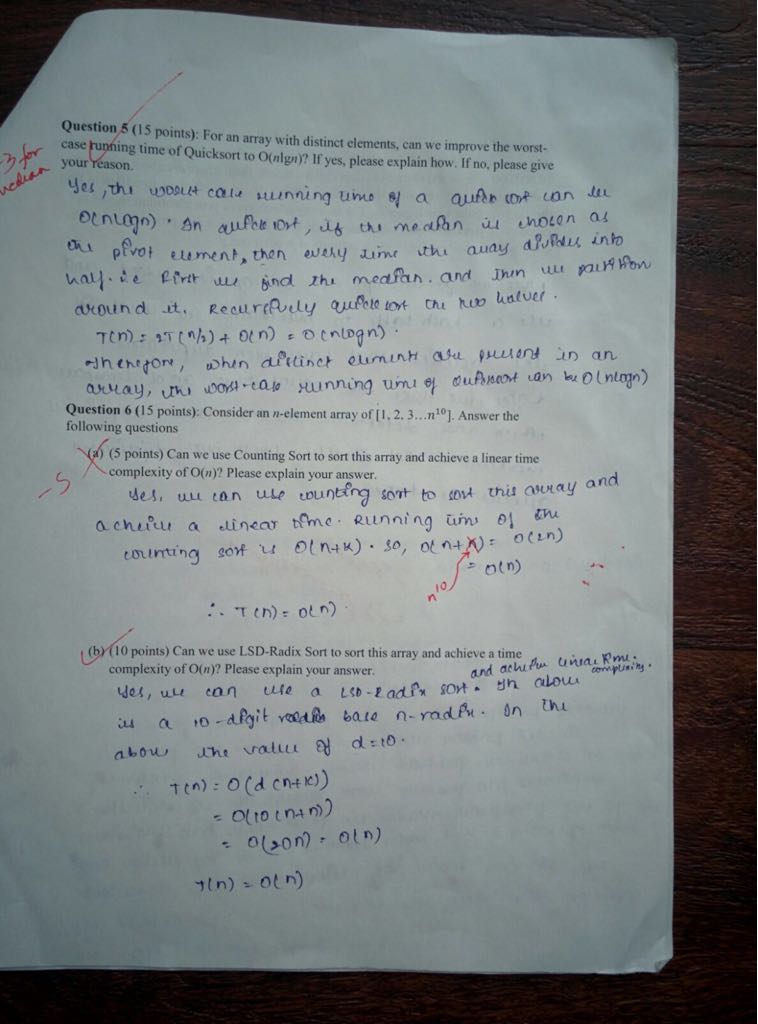 Question 5 (15 points): For an array with distinct elements, can we improve the worst-
case running time of Quicksort to O(nlgn)? If yes, please explain how. If no, please give
your reason.
-3 for
median
Yes, the worst case running time of a quick sort can be
O(nlogn). In quick sort, if the median is chosen as
the pivot element, then every time the array divides into
half. i.e First we find the median. and then we partition
around it. Recursively quick sort the two halves.
T(n) = 2T(n/2) + O(n) = O(nlogn).
Therefore, when distinct elements are present in an
array, the worst-case running time of quicksort can be O(nlogn)
Question 6 (15 points): Consider an n-element array of [1, 2, 3...n¹⁰]. Answer the
following questions
(a) (5 points) Can we use Counting Sort to sort this array and achieve a linear time
-5
complexity of O(n)? Please explain your answer.
Yes, we can use counting sort to sort this array and
acheive a linear time. Running time of the
counting sort is O(n+k). So, O(n+n) = O(2n)
n¹⁰
= O(n)
∴ T(n) = O(n)
(b) (10 points) Can we use LSD-Radix Sort to sort this array and achieve a time
complexity of O(n)? Please explain your answer.
and acheive linear time complexity.
Yes, we can use a LSD-Radix sort. In above
is a 10-digit base n-radix. In the
above the value of d=10.
∴ T(n) = O(d(n+k))
= O(10(n+n))
= O(20n) = O(n)
T(n) = O(n)